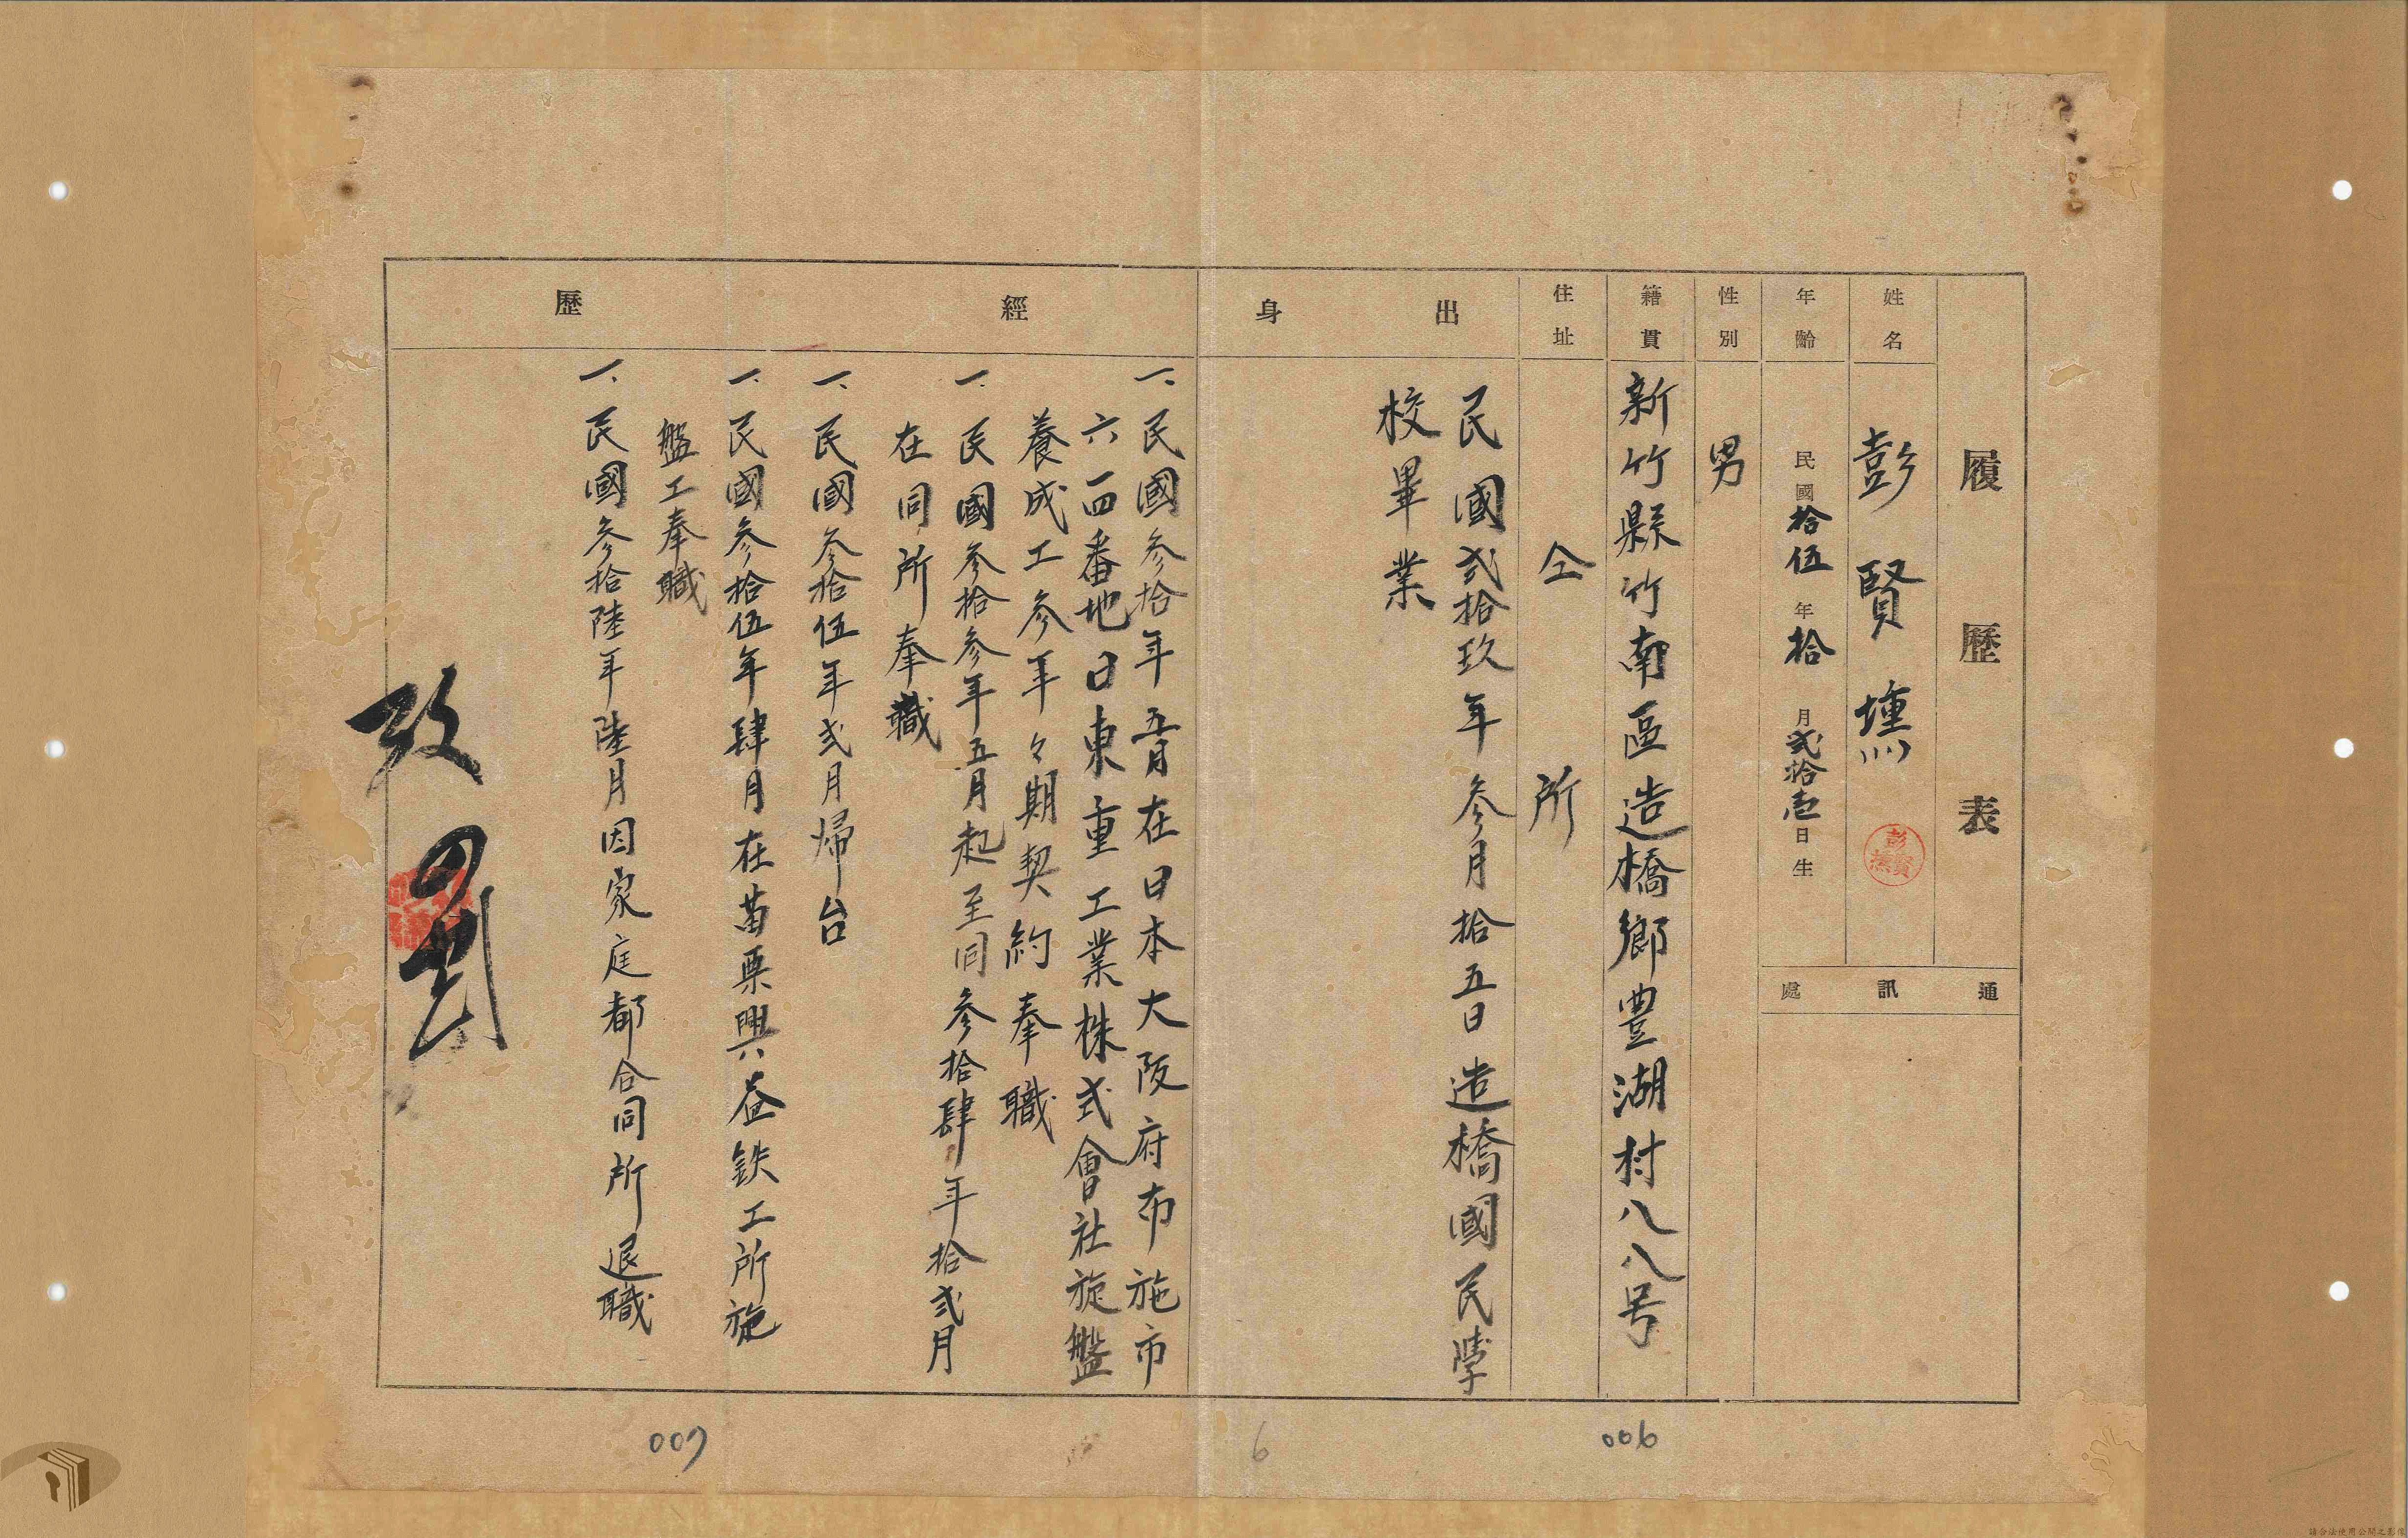 履歷表
姓名
彭賢壎
彭賢
年齡
民國拾伍年拾月弍拾壱日生
通訊處
性別
男
籍貫
新竹縣竹南區造橋鄉豊湖村八八号
住址
仝所
出身
民國弍拾玖年參月拾五日造橋國民學
校畢業
經歷
一、民國參拾年五月在日本大阪府布施市
六一四番地日東重工業株式會社旋盤
養成工參年々期契約奉職
一、民國參拾參年五月起至同參拾肆年拾弍月
在同所奉職
一、民國參拾伍年弍月帰台
一、民國參拾伍年肆月在苗栗興益鉄工所旋
盤工奉職
一、民國參拾陸年陸月因家庭都合同所退職
007
6
006
請合法使用公開之影像